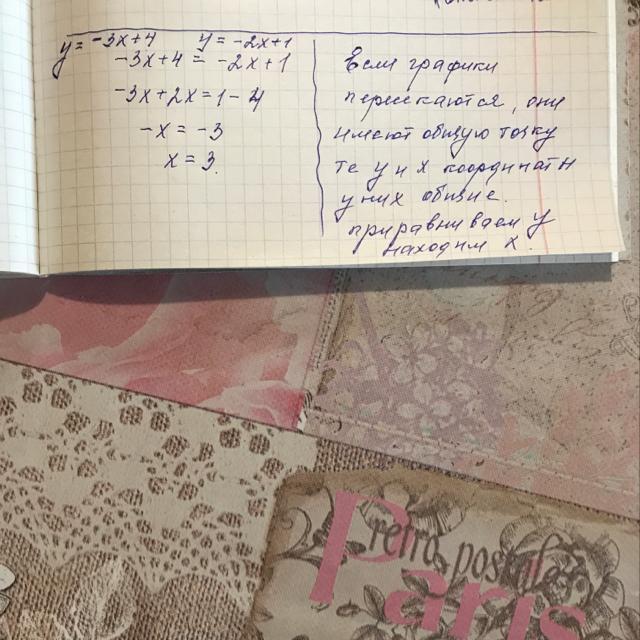 y = -3x+4 y = -2x+1
-3x+4 = -2x+1
-3x+2x=1-4
-x = -3
x = 3.
Если графики
пересекаются, они
имеют общую точку
те y и x координаты
у них общие.
приравниваем y
находим x.
Retro postales
Paris